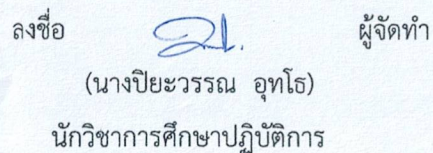 ลงชื่อ ผู้จัดทำ
(นางปิยะวรรณ อุทโธ)
นักวิชาการศึกษาปฏิบัติการ